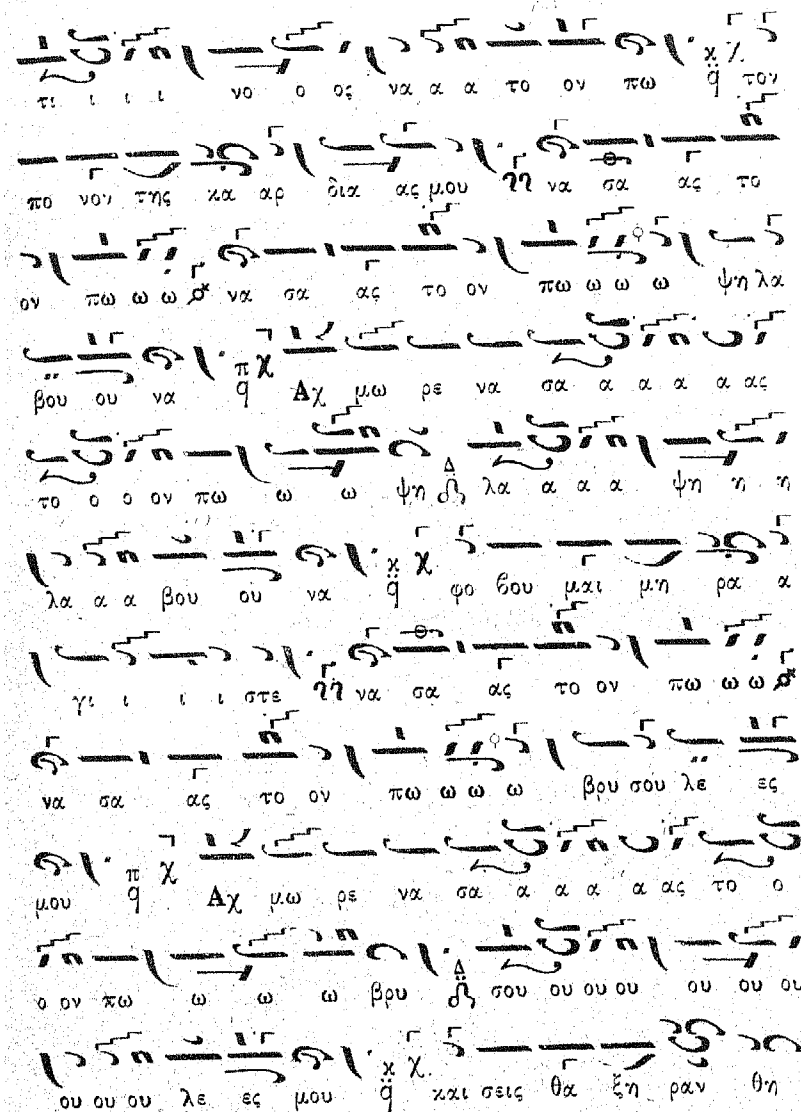 τι ι ι ι νο ο ος να α α το ον πω κ̤ q τον
πο νον της κα αρ δια ας μου να σα ας το
ον πω ω ω να σα ας το ον πω ω ω ω ψη λα
βου ου να π q Αχ μω ρε να σα α α α α ας
το ο ο ον πω ω ω ψη Δ λα α α α ψη η η
λα α α βου ου να κ̤ q φο βου μαι μη ρα α
γι ι ι ι στε να σα ας το ον πω ω ω
να σα ας το ον πω ω ω ω βρυ σου λε ες
μου π q Αχ μω ρε να σα α α α α ας το ο
ο ον πω ω ω ω βρυ Δ σου ου ου ου ου ου ου
ου ου ου λε ες μου κ̤ q και σεις θα ξη ραν θη